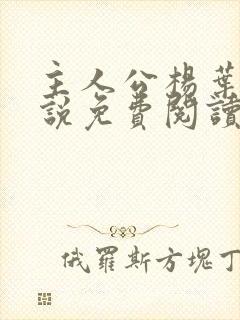 主人公楊葉
說免費閱讀
俄羅斯方塊丁